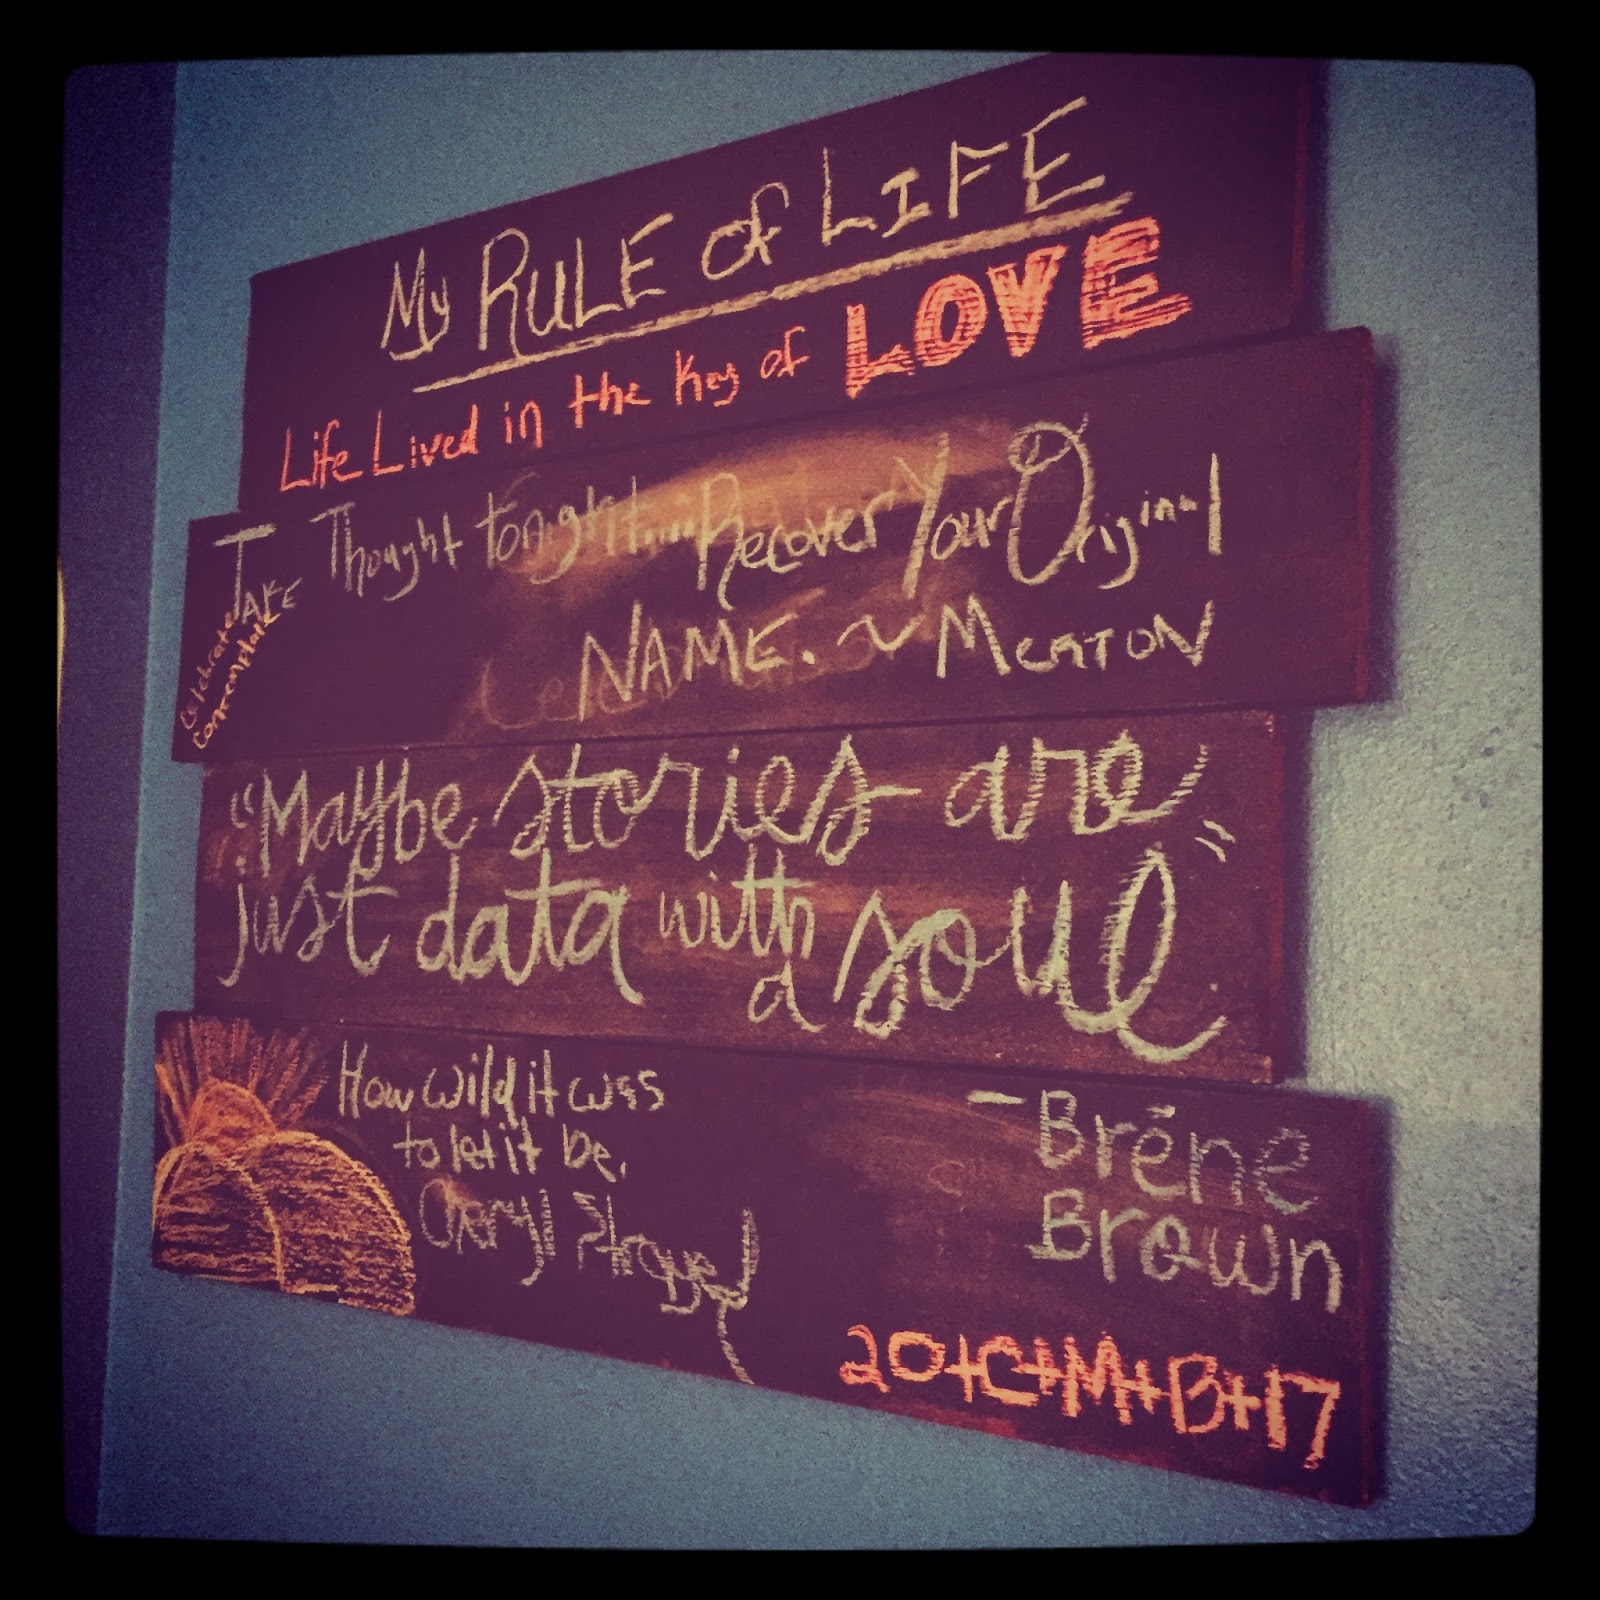 My RULE of LIFE
Life Lived in the Key of LOVE
TAKE Thought tonight.... Recover Your Original
NAME. ~ MERTON
celebrate
contemplate
"Maybe stories are
just data with a soul."
- Brēne
Brown
How wild it was
to let it be.
Cheryl Strayed
20+C+M+B+17